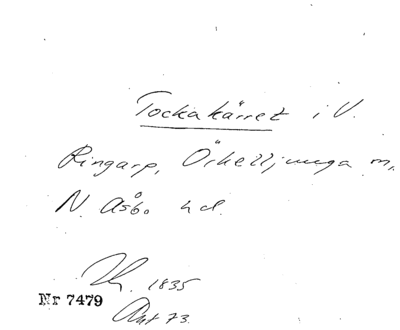 Tockakärret i V.
Ringarp, Örkelljunga m,
N. Åsbo hd.
1835
Nr 7479
Ant 73.